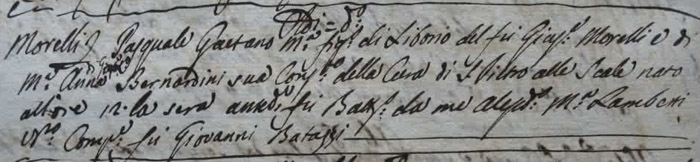 Adi = d.º
Morelli Pasquale Gaetano M.ª fig.º di Liborio del fù Gius.e Morelli e di
M.ª Anna Bernardini sua Cons.e della Cura di S. Pietro alle Scale nato
alle ore 12 la sera anted.º fù Batt.º da me Aless.º M.ª Lamberti
Comp.e fù Giovanni Batazzi